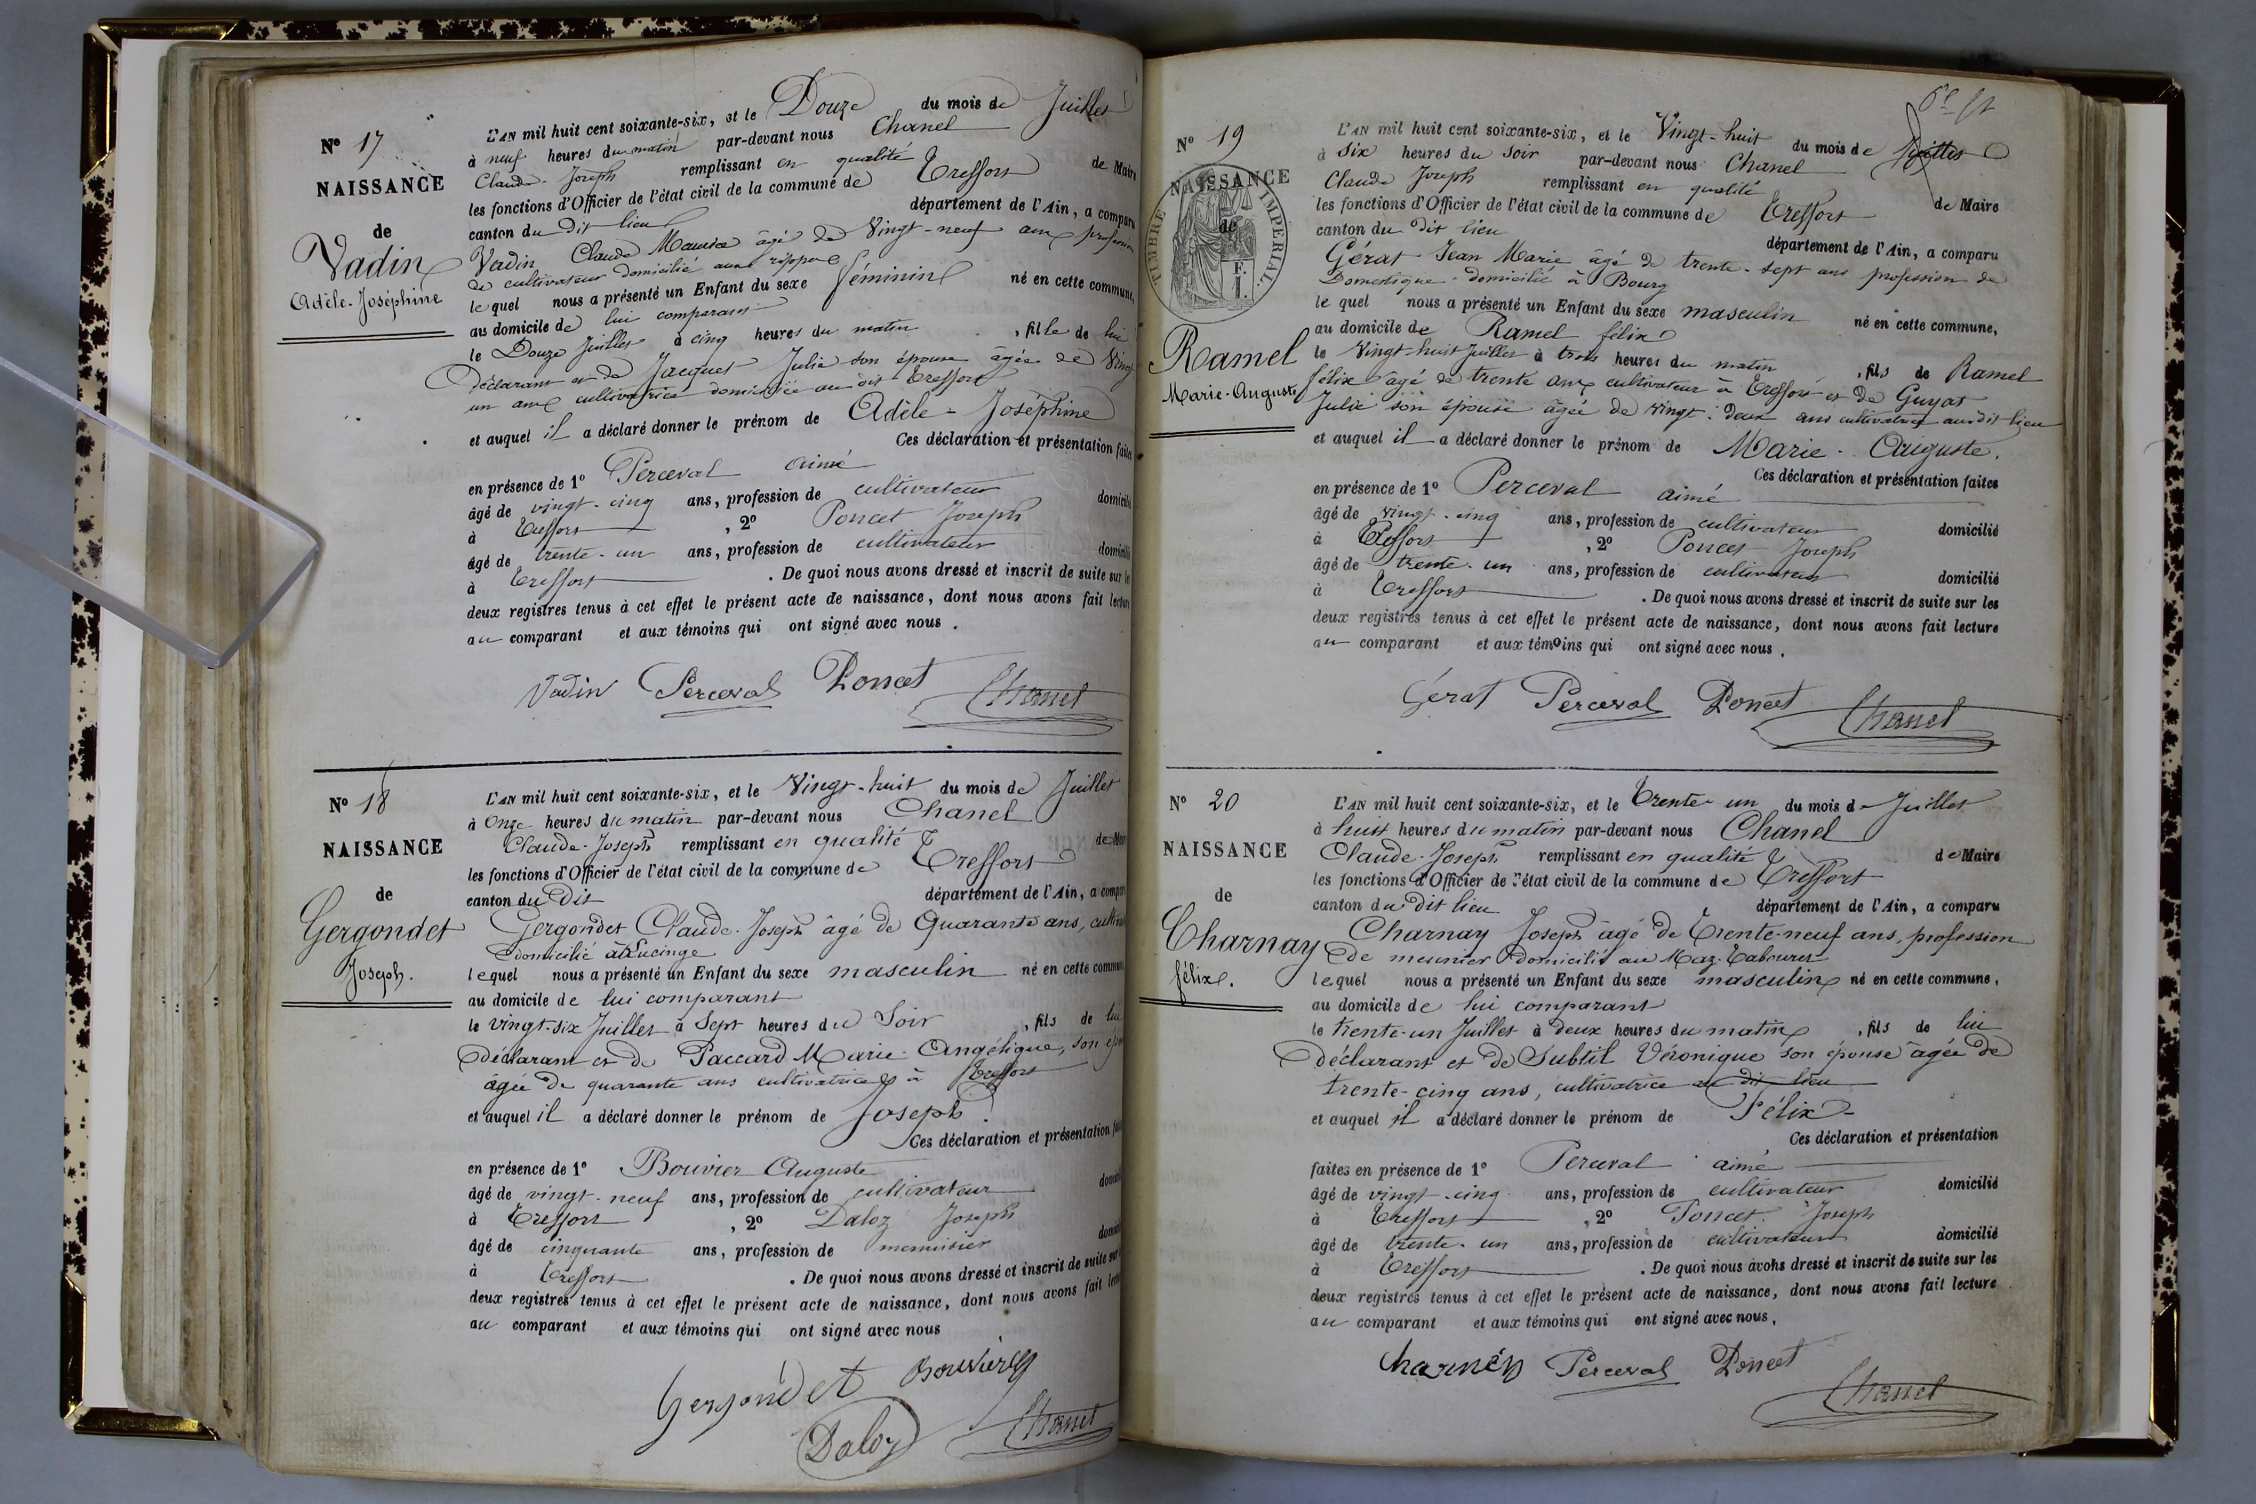 Nº 17
NAISSANCE
de
Vadin
Adèle-Joséphine
L'AN mil huit cent soixante-six, et le Douze du mois de Juillet
à neuf heures du matin par-devant nous Chanel
Claude-Joseph remplissant en qualité de Maire
les fonctions d'Officier de l'état civil de la commune de Treffort
canton du dit lieu département de l'Ain, a comparu
Vadin Claude Maurice âgé de Vingt-neuf ans profession
de cultivateur domicilié aux
lequel nous a présenté un Enfant du sexe féminin né en cette commune,
au domicile de lui comparant
le Douze Juillet à cinq heures du matin, fille de lui
Déclarant et de Jacquet Julie son épouse âgée de Vingt
un ans cultivatrice domiciliée au dit Treffort
et auquel il a déclaré donner le prénom de Adèle-Joséphine
Ces déclaration et présentation faites
en présence de 1º Perceval aimé
âgé de vingt-cinq ans, profession de cultivateur domicilié
à Treffort, 2º Poncet Joseph
âgé de trente-un ans, profession de cultivateur domicilié
à Treffort. De quoi nous avons dressé et inscrit de suite sur les
deux registres tenus à cet effet le présent acte de naissance, dont nous avons fait lecture
au comparant et aux témoins qui ont signé avec nous.
Vadin Perceval Poncet Chanel
Nº 18
NAISSANCE
de
Gergondet
Joseph.
L'AN mil huit cent soixante-six, et le Vingt-huit du mois de Juillet
à Onze heures du matin par-devant nous Chanel
Claude-Joseph remplissant en qualité de Maire
les fonctions d'Officier de l'état civil de la commune de Treffort
canton du dit département de l'Ain, a comparu
Gergondet Claude-Joseph âgé de Quarante ans, cultivateur
domicilié à Lucinge
lequel nous a présenté un Enfant du sexe masculin né en cette commune
au domicile de lui comparant
le vingt-six Juillet à Sept heures du Soir, fils de lui
déclarant et de Paccard Marie-Angélique, son épouse
âgée de quarante ans cultivatrice à Treffort
et auquel il a déclaré donner le prénom de Joseph
Ces déclaration et présentation faites
en présence de 1º Bouvier Auguste
âgé de vingt-neuf ans, profession de cultivateur domicilié
à Treffort, 2º Daloz Joseph
âgé de cinquante ans, profession de menuisier domicilié
à Treffort. De quoi nous avons dressé et inscrit de suite sur
deux registres tenus à cet effet le présent acte de naissance, dont nous avons fait lecture
au comparant et aux témoins qui ont signé avec nous
Gergondet Bouvier
Daloz Chanel
Nº 19
NAISSANCE
de
TIMBRE IMPERIAL.
Ramel
Marie-Auguste
L'AN mil huit cent soixante-six, et le Vingt-huit du mois de Juillet
à Six heures du soir par-devant nous Chanel
Claude Joseph remplissant en qualité de Maire
les fonctions d'Officier de l'état civil de la commune de Treffort
canton du dit lieu département de l'Ain, a comparu
Gérat Jean Marie âgé de trente-sept ans profession de
Domestique domicilié à Bourg
lequel nous a présenté un Enfant du sexe masculin né en cette commune,
au domicile de Ramel félix
le Vingt-huit Juillet à trois heures du matin, fils de Ramel
félix âgé de trente ans cultivateur à Treffort et de Guyat
Julie son épouse âgée de vingt-deux ans cultivatrice audit lieu
et auquel il a déclaré donner le prénom de Marie-Auguste.
Ces déclaration et présentation faites
en présence de 1º Perceval aimé
âgé de vingt-cinq ans, profession de cultivateur domicilié
à Treffort, 2º Poncet Joseph
âgé de trente-un ans, profession de cultivateur domicilié
à Treffort. De quoi nous avons dressé et inscrit de suite sur les
deux registres tenus à cet effet le présent acte de naissance, dont nous avons fait lecture
au comparant et aux témoins qui ont signé avec nous.
Gérat Perceval Poncet Chanel
Nº 20
NAISSANCE
de
Charnay
félix.
L'AN mil huit cent soixante-six, et le Trente-un du mois de Juillet
à huit heures du matin par-devant nous Chanel
Claude-Joseph remplissant en qualité de Maire
les fonctions d'Officier de l'état civil de la commune de Treffort
canton du dit lieu département de l'Ain, a comparu
Charnay Joseph âgé de Trente-neuf ans, profession
de meunier domicilié au Maz-Tabouret
lequel nous a présenté un Enfant du sexe masculin né en cette commune,
au domicile de lui comparant
le trente-un Juillet à deux heures du matin, fils de lui
déclarant et de Subtil Véronique son épouse âgée de
trente-cinq ans, cultivatrice au dit lieu
et auquel il a déclaré donner le prénom de Félix
Ces déclaration et présentation
faites en présence de 1º Perceval aimé
âgé de vingt-cinq ans, profession de cultivateur domicilié
à Treffort, 2º Poncet Joseph
âgé de trente-un ans, profession de cultivateur domicilié
à Treffort. De quoi nous avons dressé et inscrit de suite sur les
deux registres tenus à cet effet le présent acte de naissance, dont nous avons fait lecture
au comparant et aux témoins qui ont signé avec nous.
Charnay Perceval Poncet
Chanel